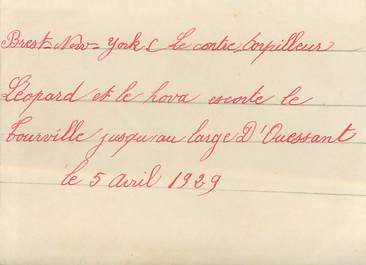 Brest = New = York ( Le contre torpilleur
Léopard et le hova escorte le
Tourville jusqu'au large D'Ouessant
le 5 avril 1929